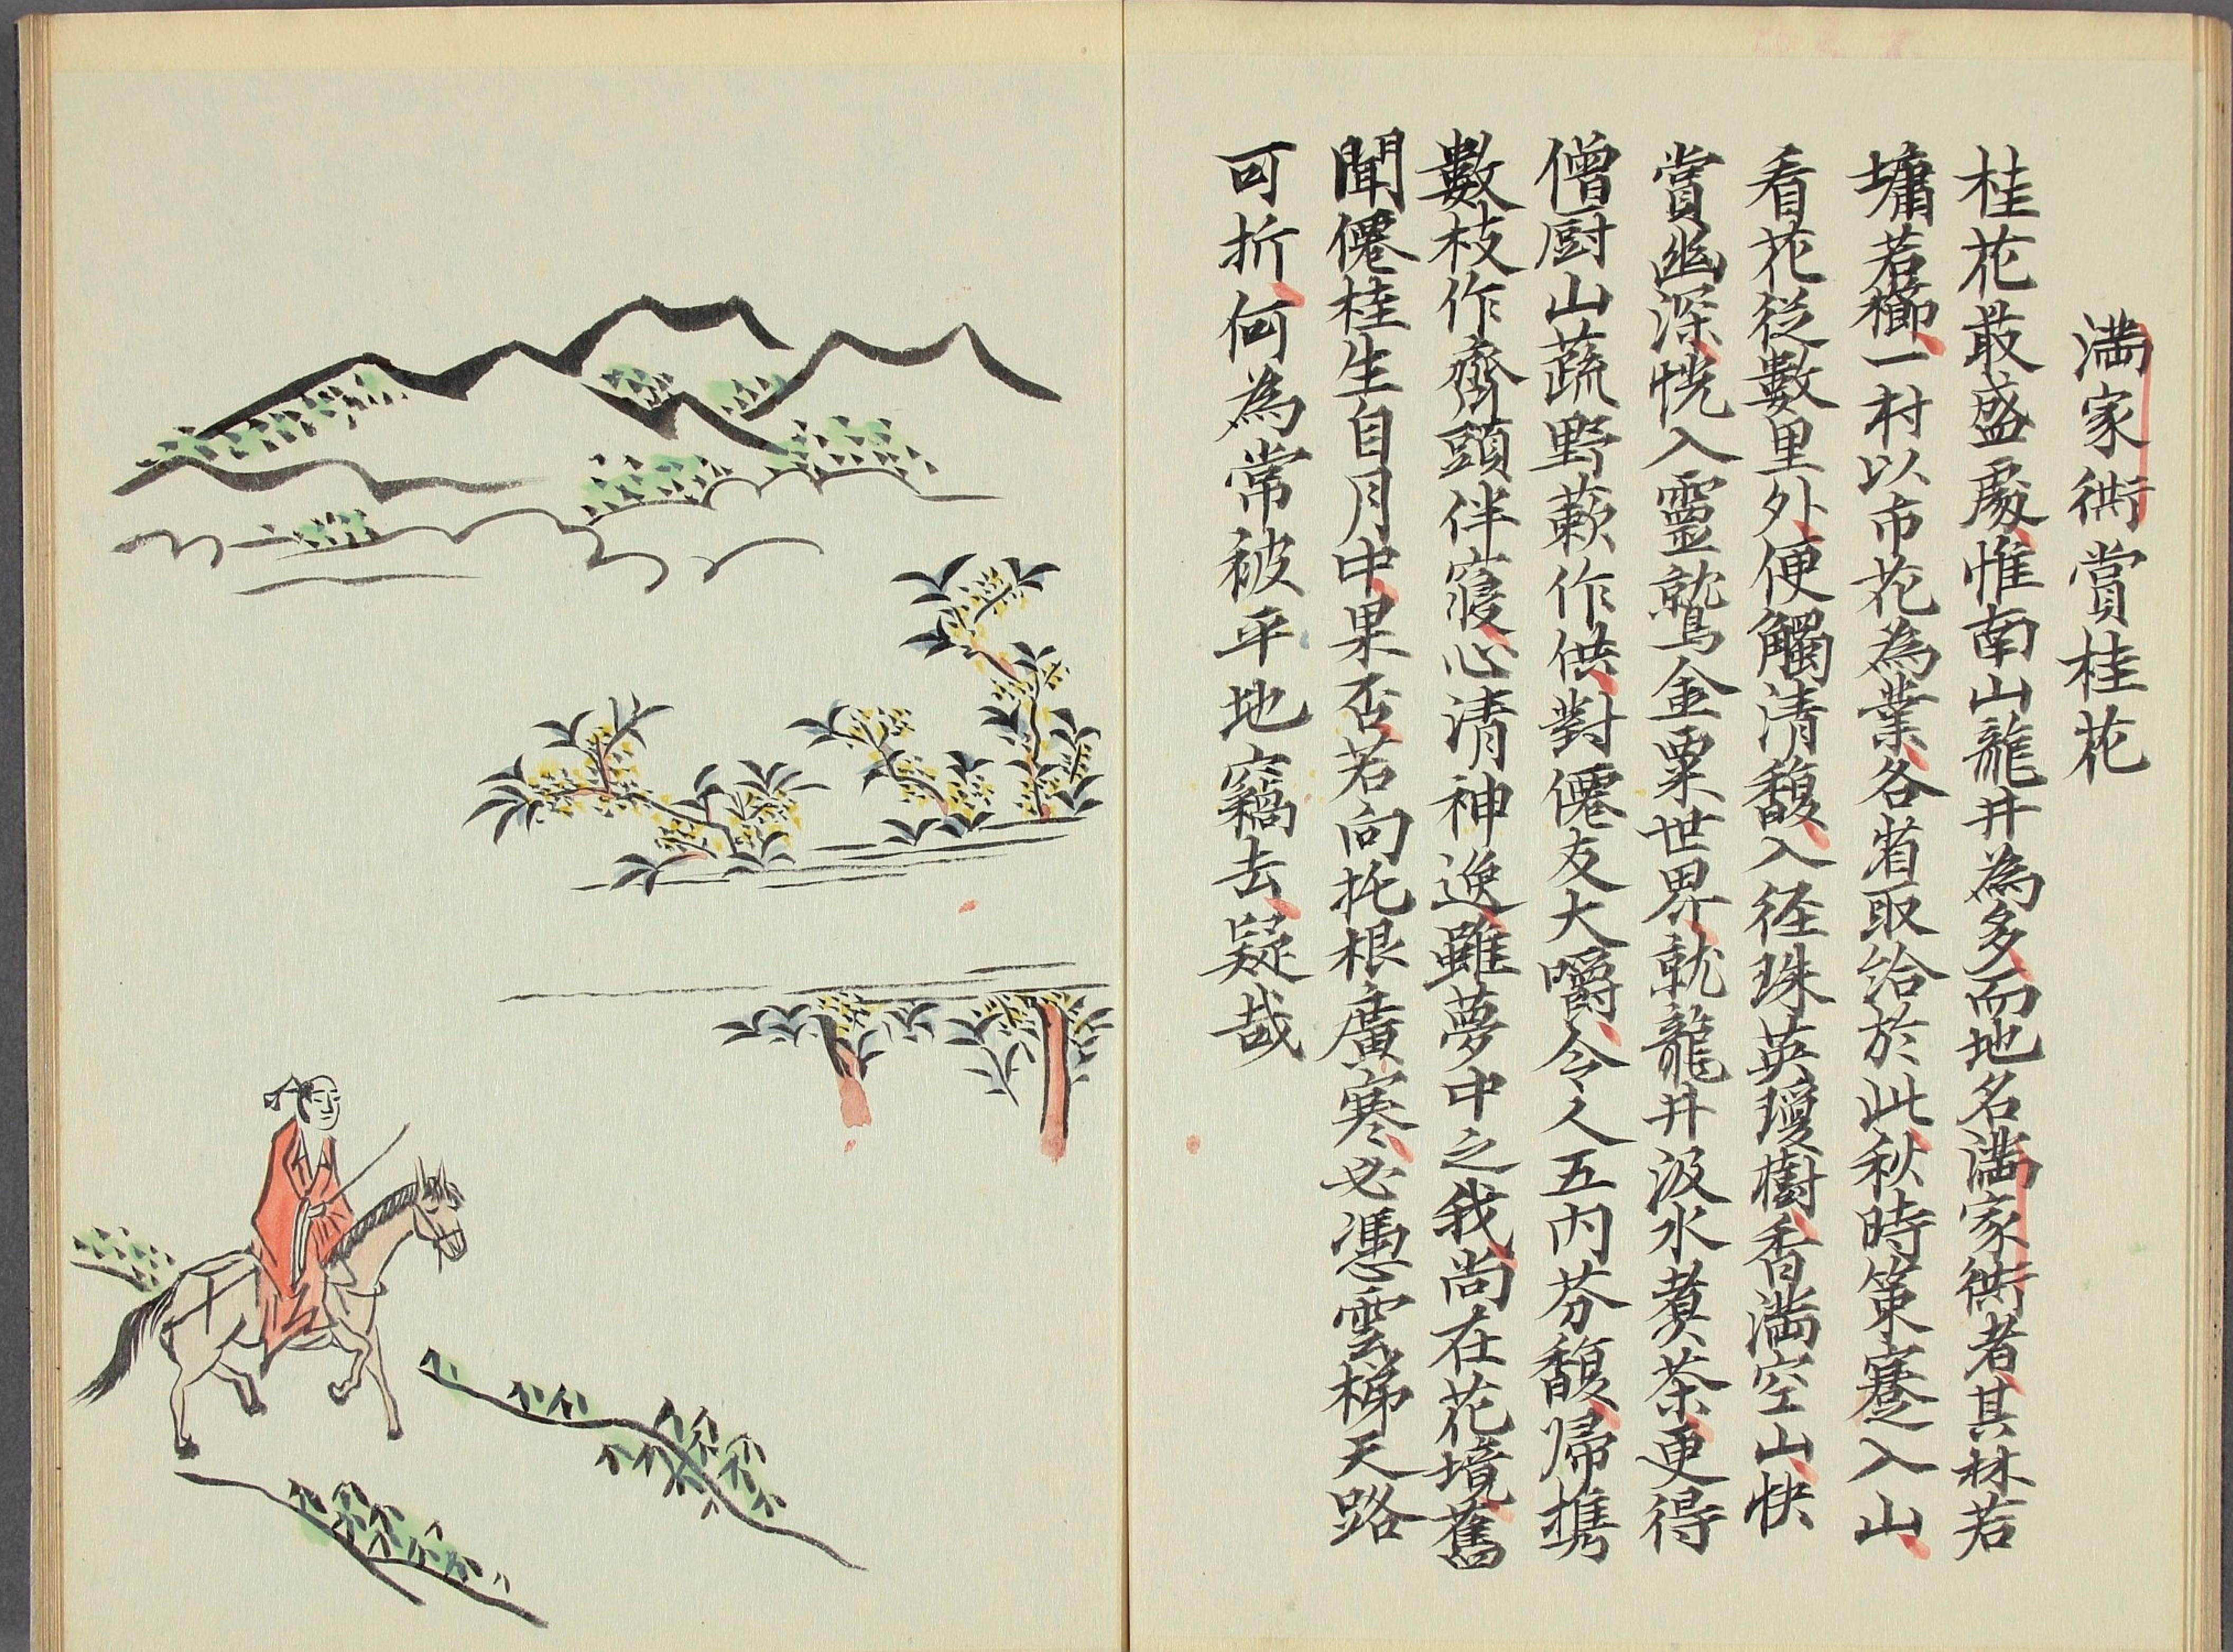 満家衖賞桂花
桂花最盛處惟南山龍井為多而地名満家衖者其林若
墉若櫛一村以市花為業各省取給於此秋時策蹇入山
看花從數里外便觸清馥入徑珠英瓊樹香満空山快
賞幽深恍入靈鷲金粟世界就龍井汲水煑茶更得
僧厨山蔬野蔌作供對僊友大嚼令人五内芬馥帰携
數枝作齋頭伴寢心清神逸雖夢中之我尚在花境舊
聞僊桂生自月中果否若向托根廣寒必憑雲梯天路
可折何為常被平地竊去疑哉